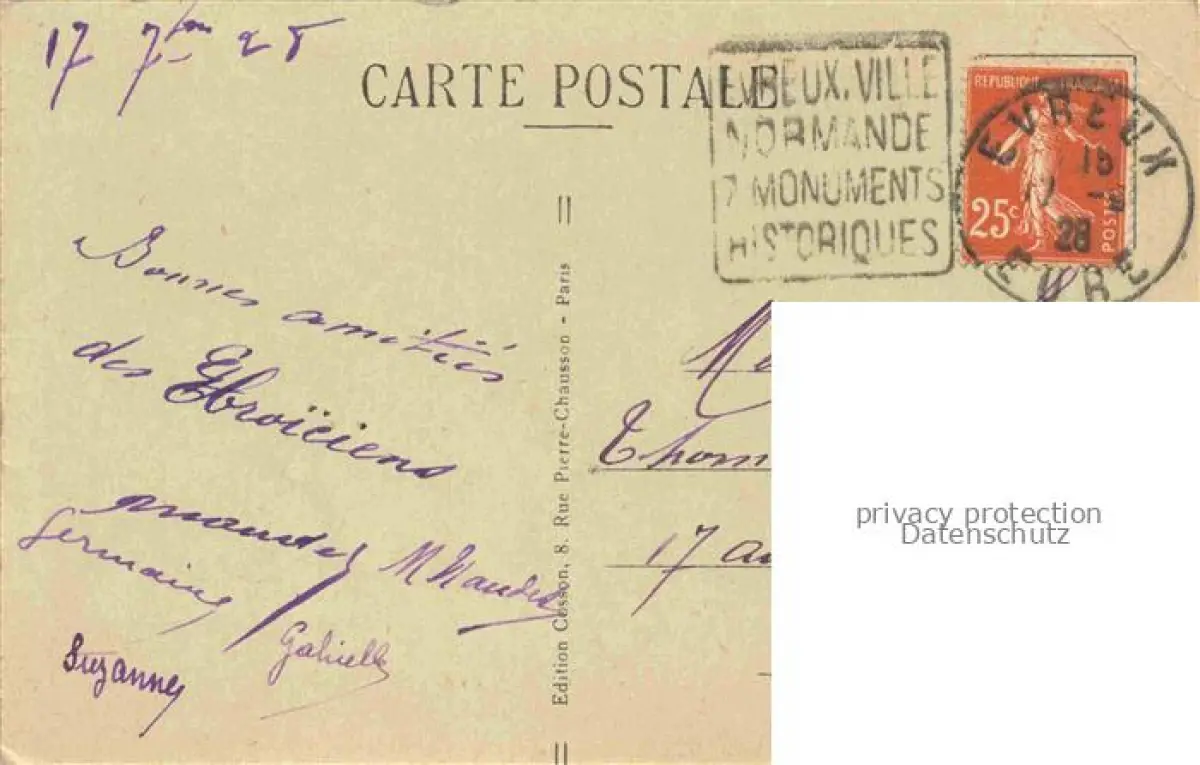 17 7bre 28
CARTE POSTALE
EVREUX. VILLE
NORMANDE
7 MONUMENTS
HISTORIQUES
REPUBLIQUE FRANÇAISE
25c
POSTES
EVREUX
15
28
EURE
Bonnes amitiés
des Ebroïciens
Germaine
Suzanne
Gabrielle
Edition Cosson, 8. Rue Pierre-Chausson - Paris
Thom
17 au
privacy protection
Datenschutz